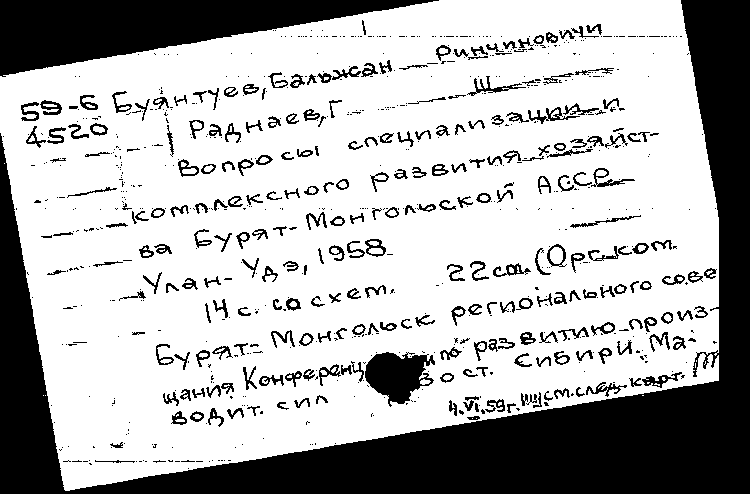 59-6 Буянтуев, Бальжан Ринчинович и
4520 Раднаев, Г. Ш.
Вопросы специализации и
комплексного развития хозяйст-
ва Бурят-Монгольской АССР
Улан-Удэ, 1958
14 с. со схем. 22 см. (Орг. ком.
Бурят-Монгольск регионального сове
щания Конференц по развитию произ-
водит. сил Вост. Сибири. Ма-
4.VI.59г. см. след. карт.